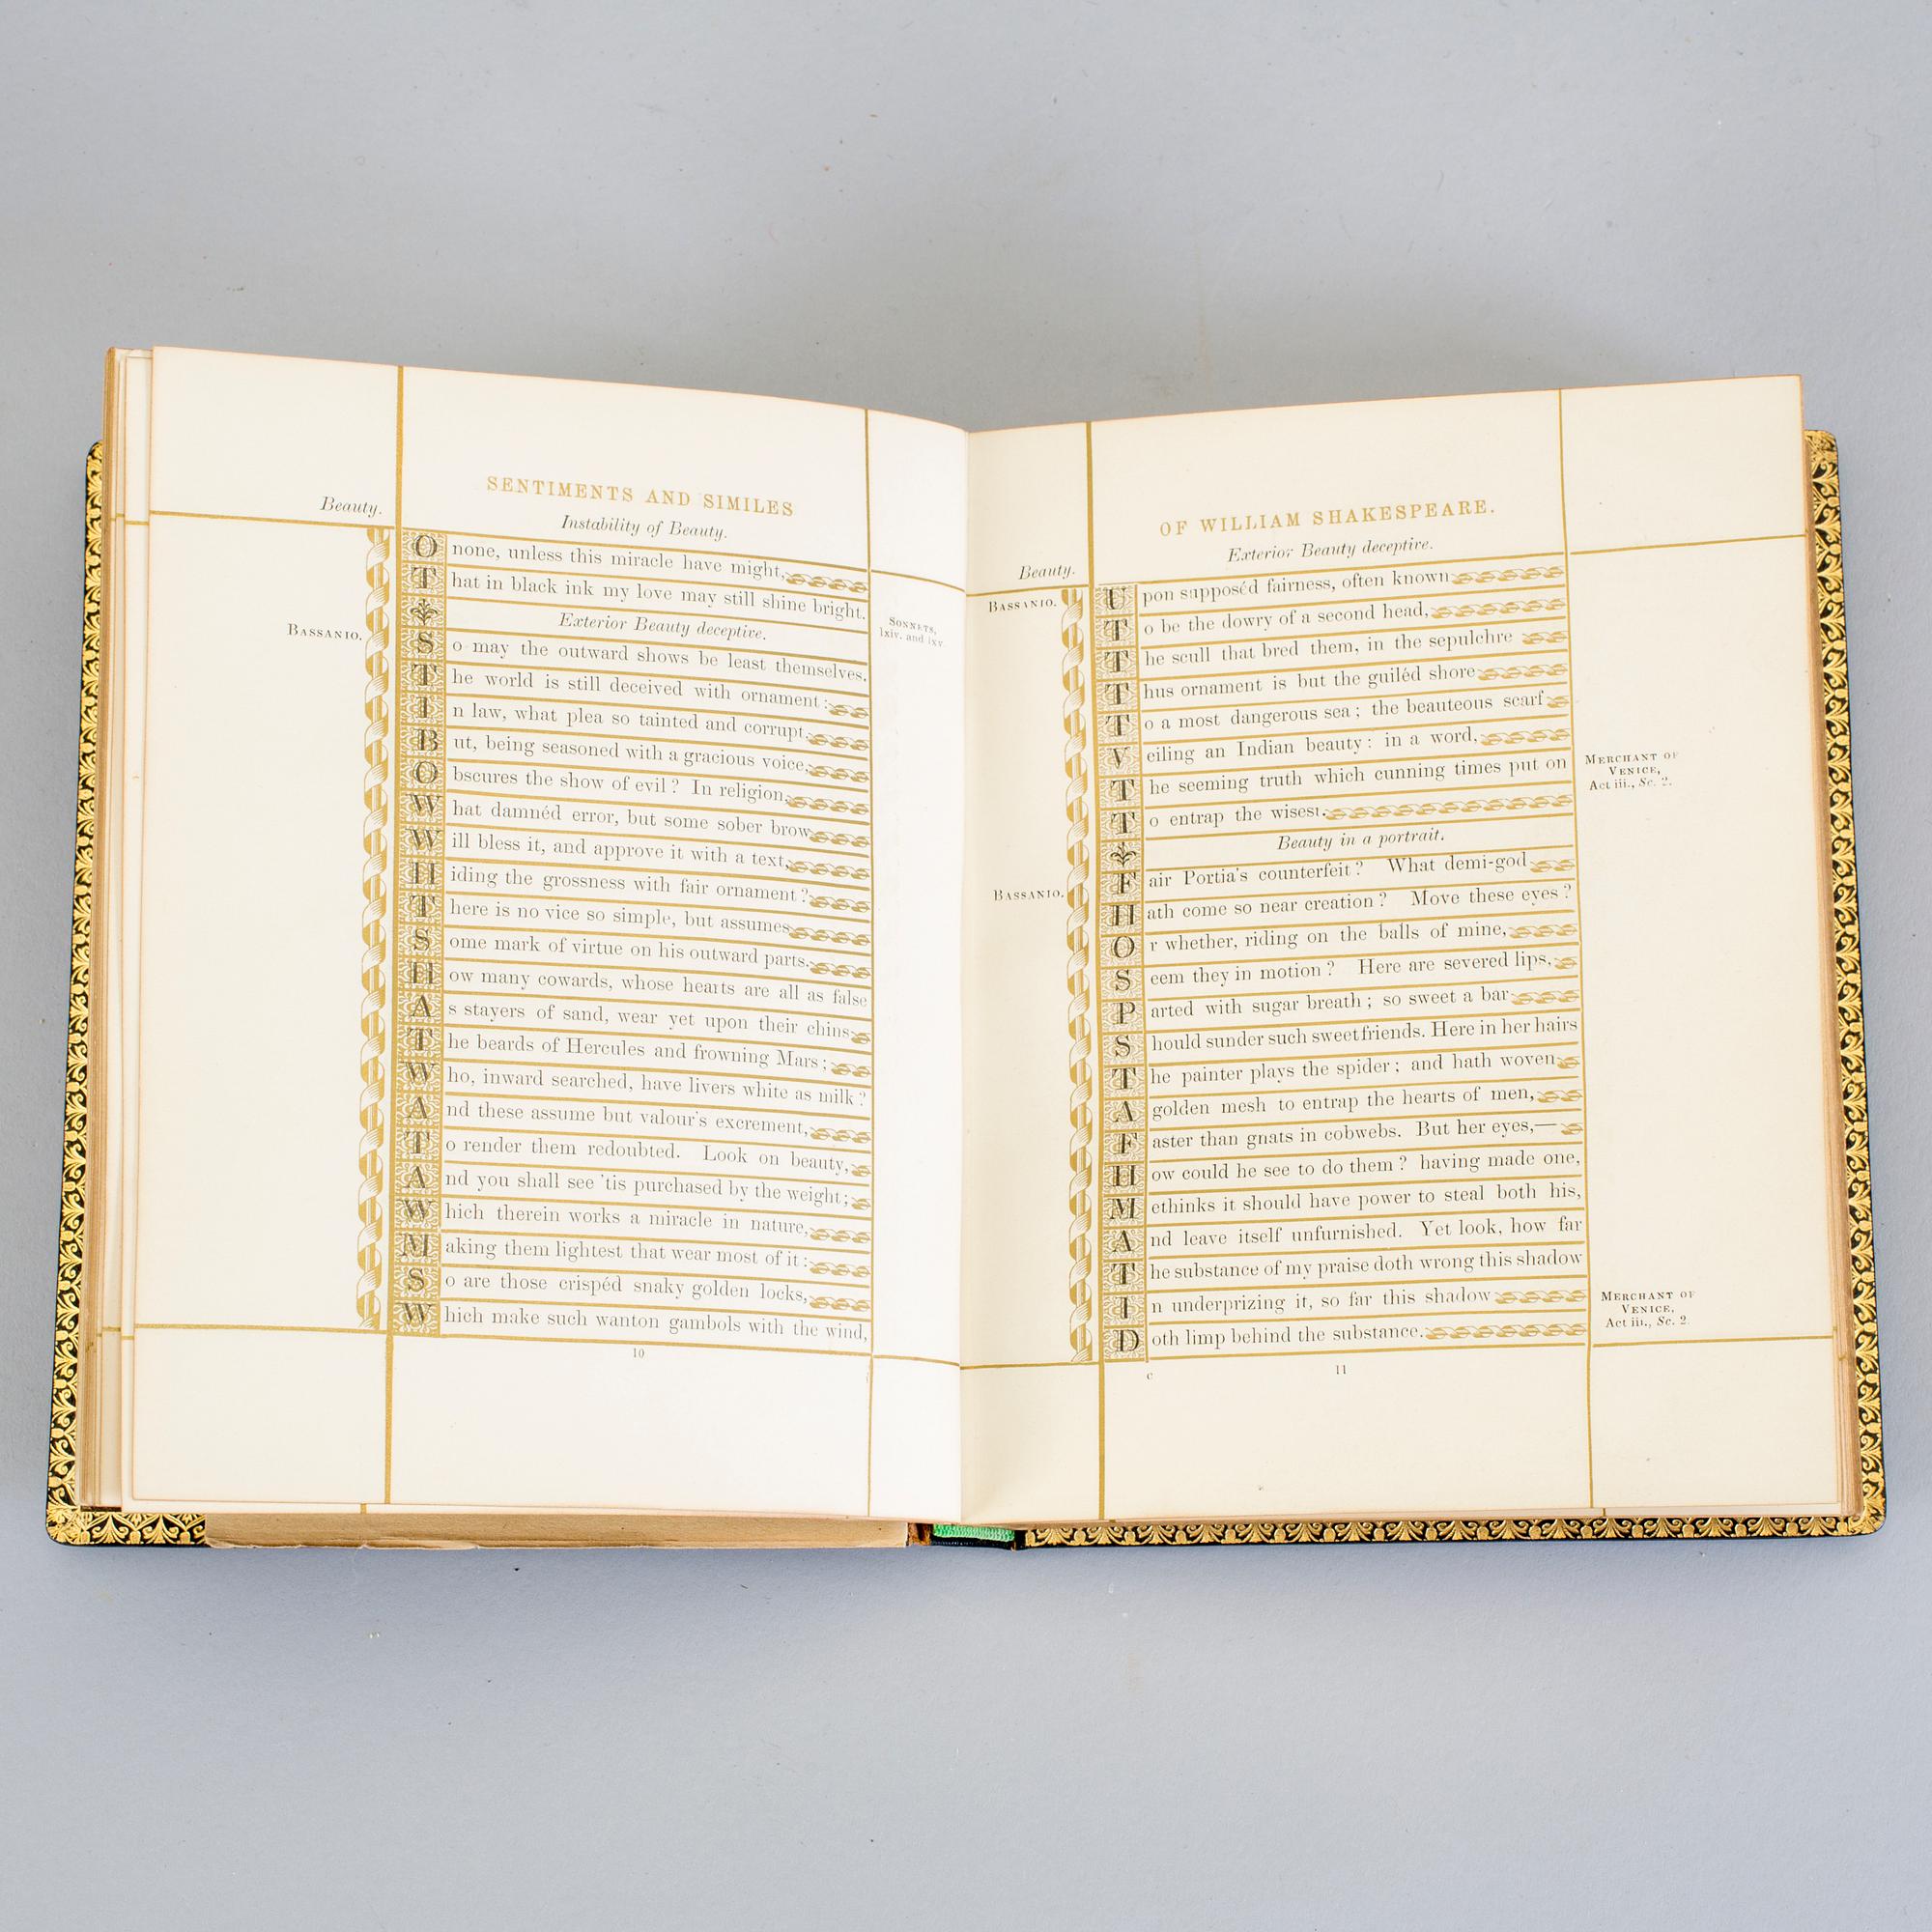 SENTIMENTS AND SIMILES
Beauty.
Instability of Beauty.
O none, unless this miracle have might,
That in black ink my love may still shine bright.
SONNETS,
lxiv. and lxv
Exterior Beauty deceptive.
BASSANIO.
So may the outward shows be least themselves.
The world is still deceived with ornament:
In law, what plea so tainted and corrupt,
But, being seasoned with a gracious voice,
Obscures the show of evil? In religion,
What damnéd error, but some sober brow
Will bless it, and approve it with a text,
Hiding the grossness with fair ornament?
There is no vice so simple, but assumes
Some mark of virtue on his outward parts.
How many cowards, whose hearts are all as false
As stayers of sand, wear yet upon their chins
The beards of Hercules and frowning Mars;
Who, inward searched, have livers white as milk?
And these assume but valour's excrement,
To render them redoubted. Look on beauty,
And you shall see 'tis purchased by the weight;
Which therein works a miracle in nature,
Making them lightest that wear most of it:
So are those crispéd snaky golden locks,
Which make such wanton gambols with the wind,
10
OF WILLIAM SHAKESPEARE.
Beauty.
Exterior Beauty deceptive.
BASSANIO.
Upon supposéd fairness, often known
To be the dowry of a second head,
The scull that bred them, in the sepulchre
Thus ornament is but the guiléd shore
To a most dangerous sea; the beauteous scarf
Veiling an Indian beauty: in a word,
The seeming truth which cunning times put on
To entrap the wisest.
MERCHANT OF
VENICE,
Act iii., Sc. 2.
Beauty in a portrait.
BASSANIO.
Fair Portia's counterfeit? What demi-god
Hath come so near creation? Move these eyes?
Or whether, riding on the balls of mine,
Seem they in motion? Here are severed lips,
Parted with sugar breath; so sweet a bar
Should sunder such sweet friends. Here in her hairs
The painter plays the spider; and hath woven
A golden mesh to entrap the hearts of men,
Faster than gnats in cobwebs. But her eyes,—
How could he see to do them? having made one,
Methinks it should have power to steal both his,
And leave itself unfurnished. Yet look, how far
The substance of my praise doth wrong this shadow
In underprizing it, so far this shadow
Doth limp behind the substance.
MERCHANT OF
VENICE,
Act iii., Sc. 2.
c
11